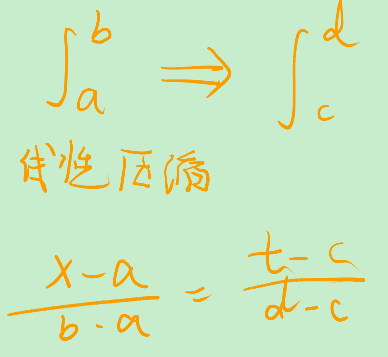 ∫_a^b ⇒ ∫_c^d
线性压缩
(x-a)/(b-a) = (t-c)/(d-c)